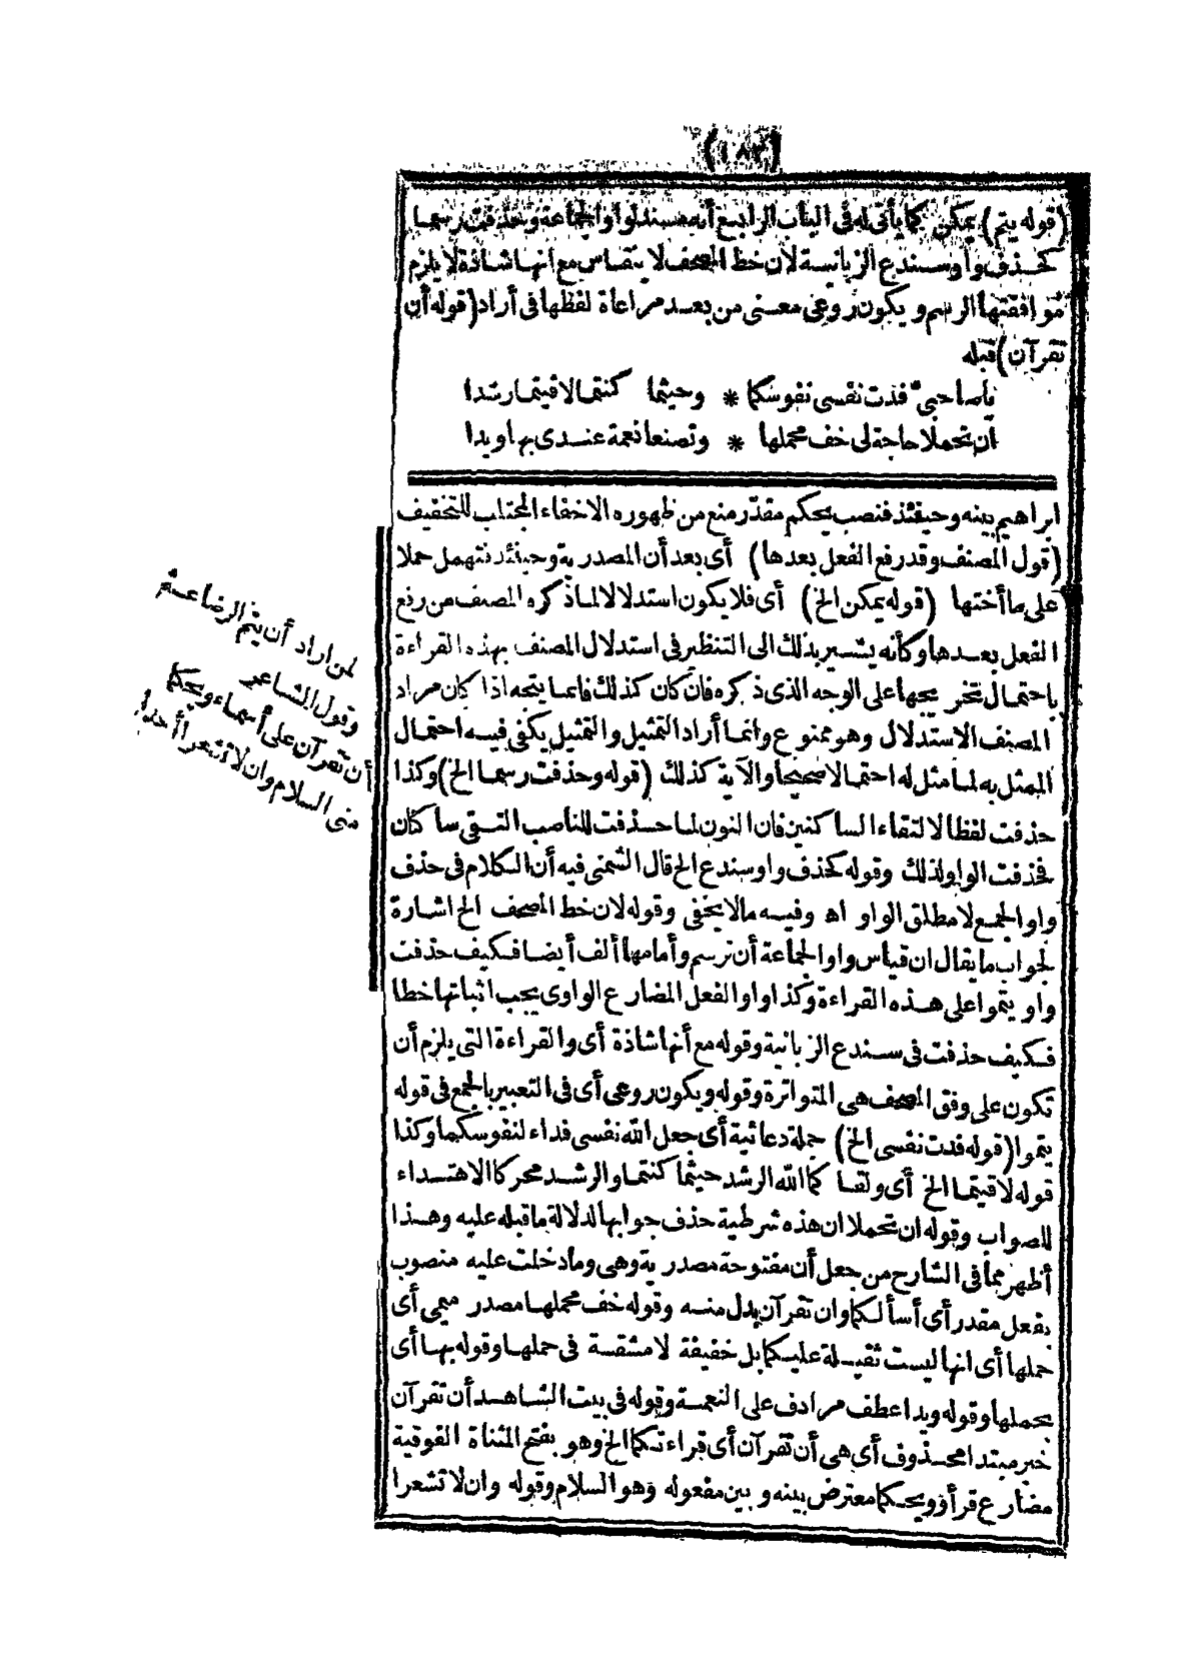 (١٨٣)
(قوله يتم) يمكن كما يأتى له فى الباب الرابع أنه مسند لواو الجماعة وحذفت رسما
كحذف واو سندع الزبانية لان خط المصحف لا ينقاس مع انها شاذة لا يلزم
موافقتها الرسم ويكون روعى معنى من بعد مراعاة لفظها فى أراد (قوله أن
تقرآن) قبله
ياصاحبىّ فدت نفسى نفوسكما * وحيثما كنتما لاقيتما رشدا
ان تحملا حاجة لى خف محملها * وتصنعا نعمة عندى بها ويدا
ابراهيم بينه وحينئذ فنصب يحكم مقدّر منع من ظهوره الاخفاء المجتلب للتخفيف
(قول المصنف وقد رفع الفعل بعدها) أى بعد أن المصدرية وحينئذ تهمل حملا
على ما أختها (قوله يمكن الخ) أى فلا يكون استدلالا لما ذكره المصنف من رفع
الفعل بعدها وكأنه يشير بذلك الى التنظير فى استدلال المصنف بهذه القراءة
باحتمال تخريجها على الوجه الذى ذكره فان كان كذلك فانما يتجه اذا كان مراد
المصنف الاستدلال وهو ممنوع وانما أراد التمثيل والتمثيل يكفى فيه احتمال
الممثل به لما مثل له احتمالا صحيحا والآية كذلك (قوله وحذفت رسما الخ) وكذا
حذفت لفظا لالتقاء الساكنين فان النون لما حذفت للناصب التقى ساكنان
فحذفت الواو لذلك وقوله كحذف واو سندع الخ قال الشمنى فيه أن الكلام فى حذف
واو الجمع لا مطلق الواو اه وفيه مالا يخفى وقوله لان خط المصحف الخ اشارة
لجواب ما يقال ان قياس واو الجماعة أن ترسم وأمامها ألف أيضا فكيف حذفت
واو يتموا على هذه القراءة وكذا واو الفعل المضارع الواوى يجب اثباتها خطا
فكيف حذفت فى سندع الزبانية وقوله مع أنها شاذة أى والقراءة التى يلزم أن
تكون على وفق المصحف هى المتواترة وقوله ويكون روعى أى فى التعبير بالجمع فى قوله
يتموا (قوله فدت نفسى الخ) جملة دعائية أى جعل الله نفسى فداء لنفوسكما وكذا
قوله لاقيتما الخ أى ولقا كما الله الرشد حيثما كنتما والرشد محركا الاهتداء
للصواب وقوله ان تحملا ان هذه شرطية حذف جوابها لدلالة ما قبله عليه وهذا
أظهر مما فى الشارح من جعل أن مفتوحة مصدرية وهى وما دخلت عليه منصوب
بفعل مقدر أى أسألكما وان تقرآن بدل منه وقوله خف محملها مصدر ميمى أى
حملها أى انها ليست ثقيلة عليكما بل خفيفة لا مشقة فى حملها وقوله بها أى
بحملها وقوله ويدا عطف مرادف على النعمة وقوله فى بيت الشاهد أن تقرآن
خبر مبتدا محذوف أى هى أن تقرآن أى قراءتكما الخ وهو بفتح المثناة الفوقية
مضارع قرأ وويحكما معترض بينه وبين مفعوله وهو السلام وقوله وان لا تشعرا
لمن اراد أن يتم الرضاعة
وقول الشاعر
أن تقرآن على أسماء ويحكما
منى السلام وان لا تشعرا أحدا